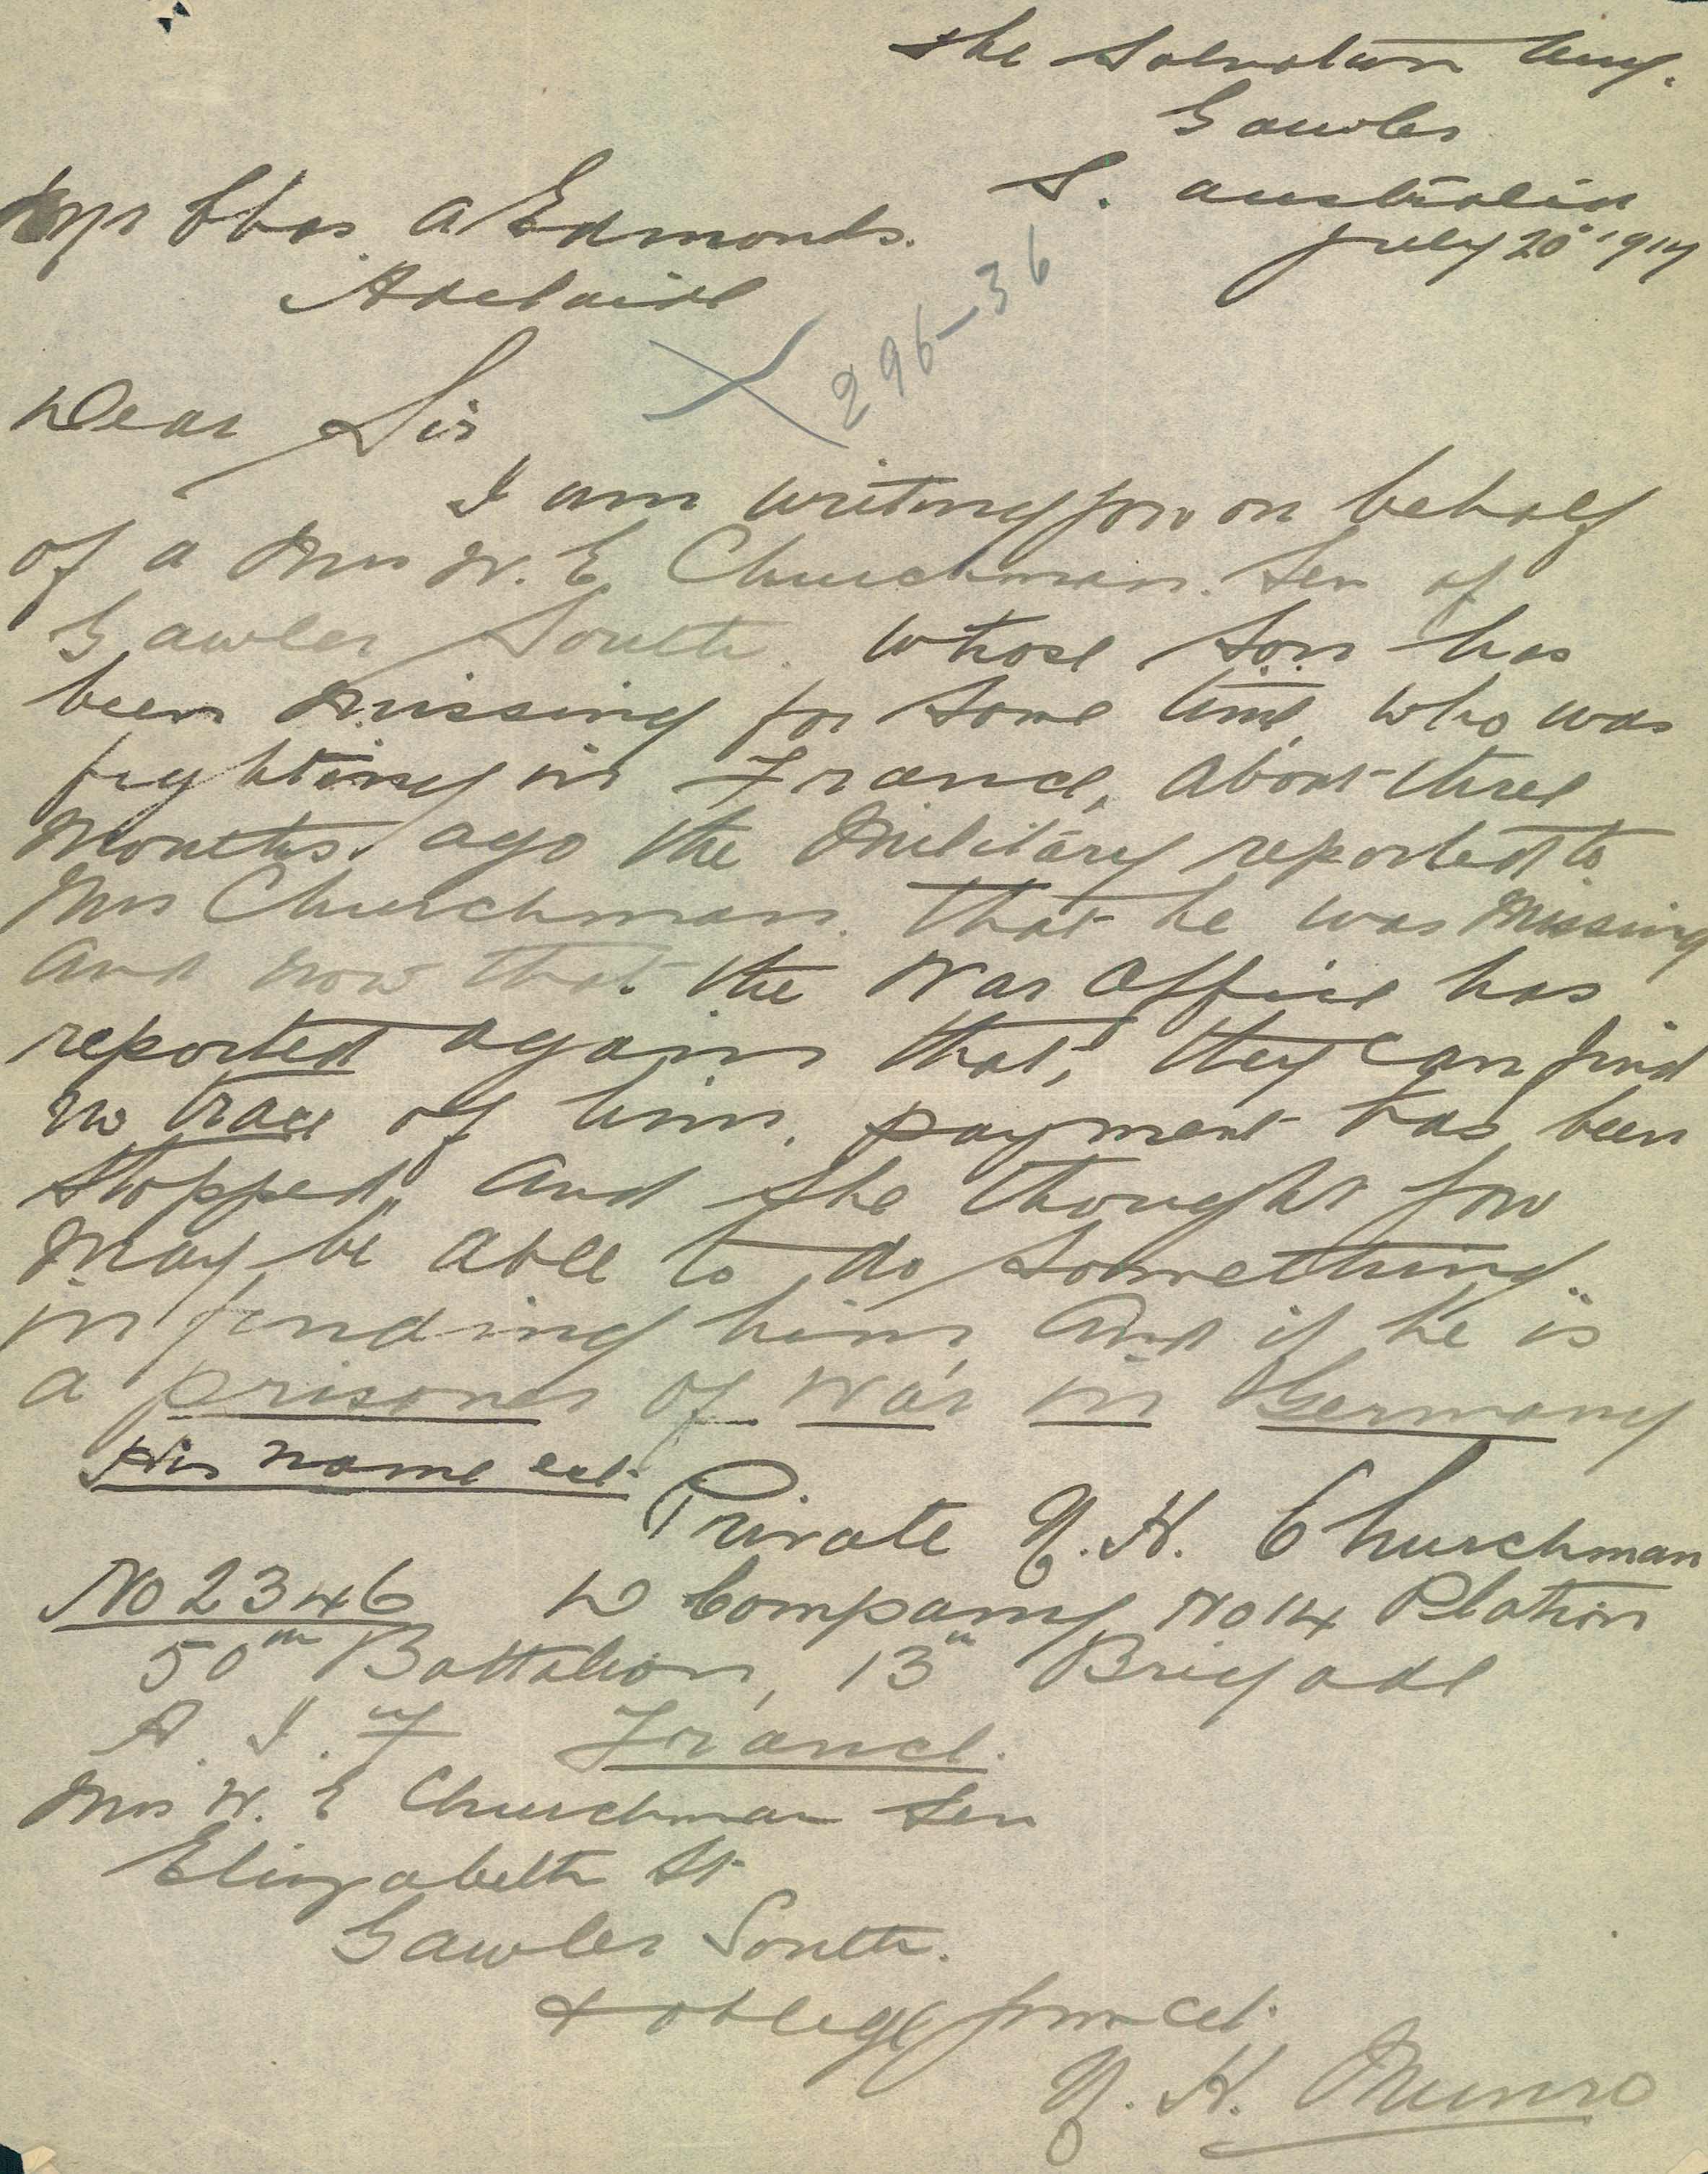 The Salvation Army.
Gawler
S. Australia
July 20" 1917
Mr Chas A Edmonds.
Adelaide
296-36
Dear Sir
I am writing you on behalf
of a Mrs W. E. Churchman. Sen of
Gawler South. whose son has
been missing for some time, who was
fighting in France, about three
months ago the Military reported to
Mrs Churchman. that he was missing
and now that the War Office has
reported again that, they can find
no trace of him. payment has been
stopped, and she thought you
may be able to do something.
in finding him, and if he is
a prisoner of War in Germany
His name ect.
Private H. Churchman
No 2346 D Company No 14 Plation
50th Battalion, 13th Brigade
A. I. F France.
Mrs W. E Churchman Sen
Elizabeth St
Gawler South.
& oblige your ect.
H. Munro